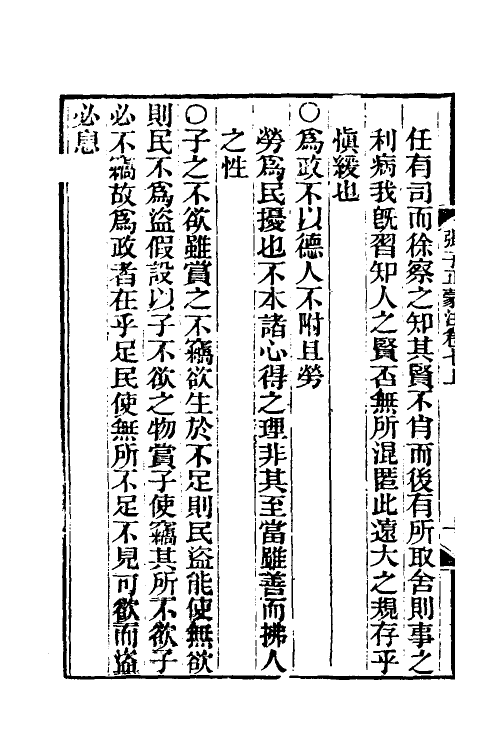 張子正蒙注卷七上
任有司而徐察之知其賢不肖而後有所取舍則事之
利病我旣習知人之賢否無所混匿此遠大之規存乎
愼緩也
○爲政不以德人不附且勞
勞爲民擾也不本諸心得之理非其至當雖善而拂人
之性
○子之不欲雖賞之不竊欲生於不足則民盜能使無欲
則民不爲盜假設以子不欲之物賞子使竊其所不欲子
必不竊故爲政者在乎足民使無所不足不見可欲而盜
必息